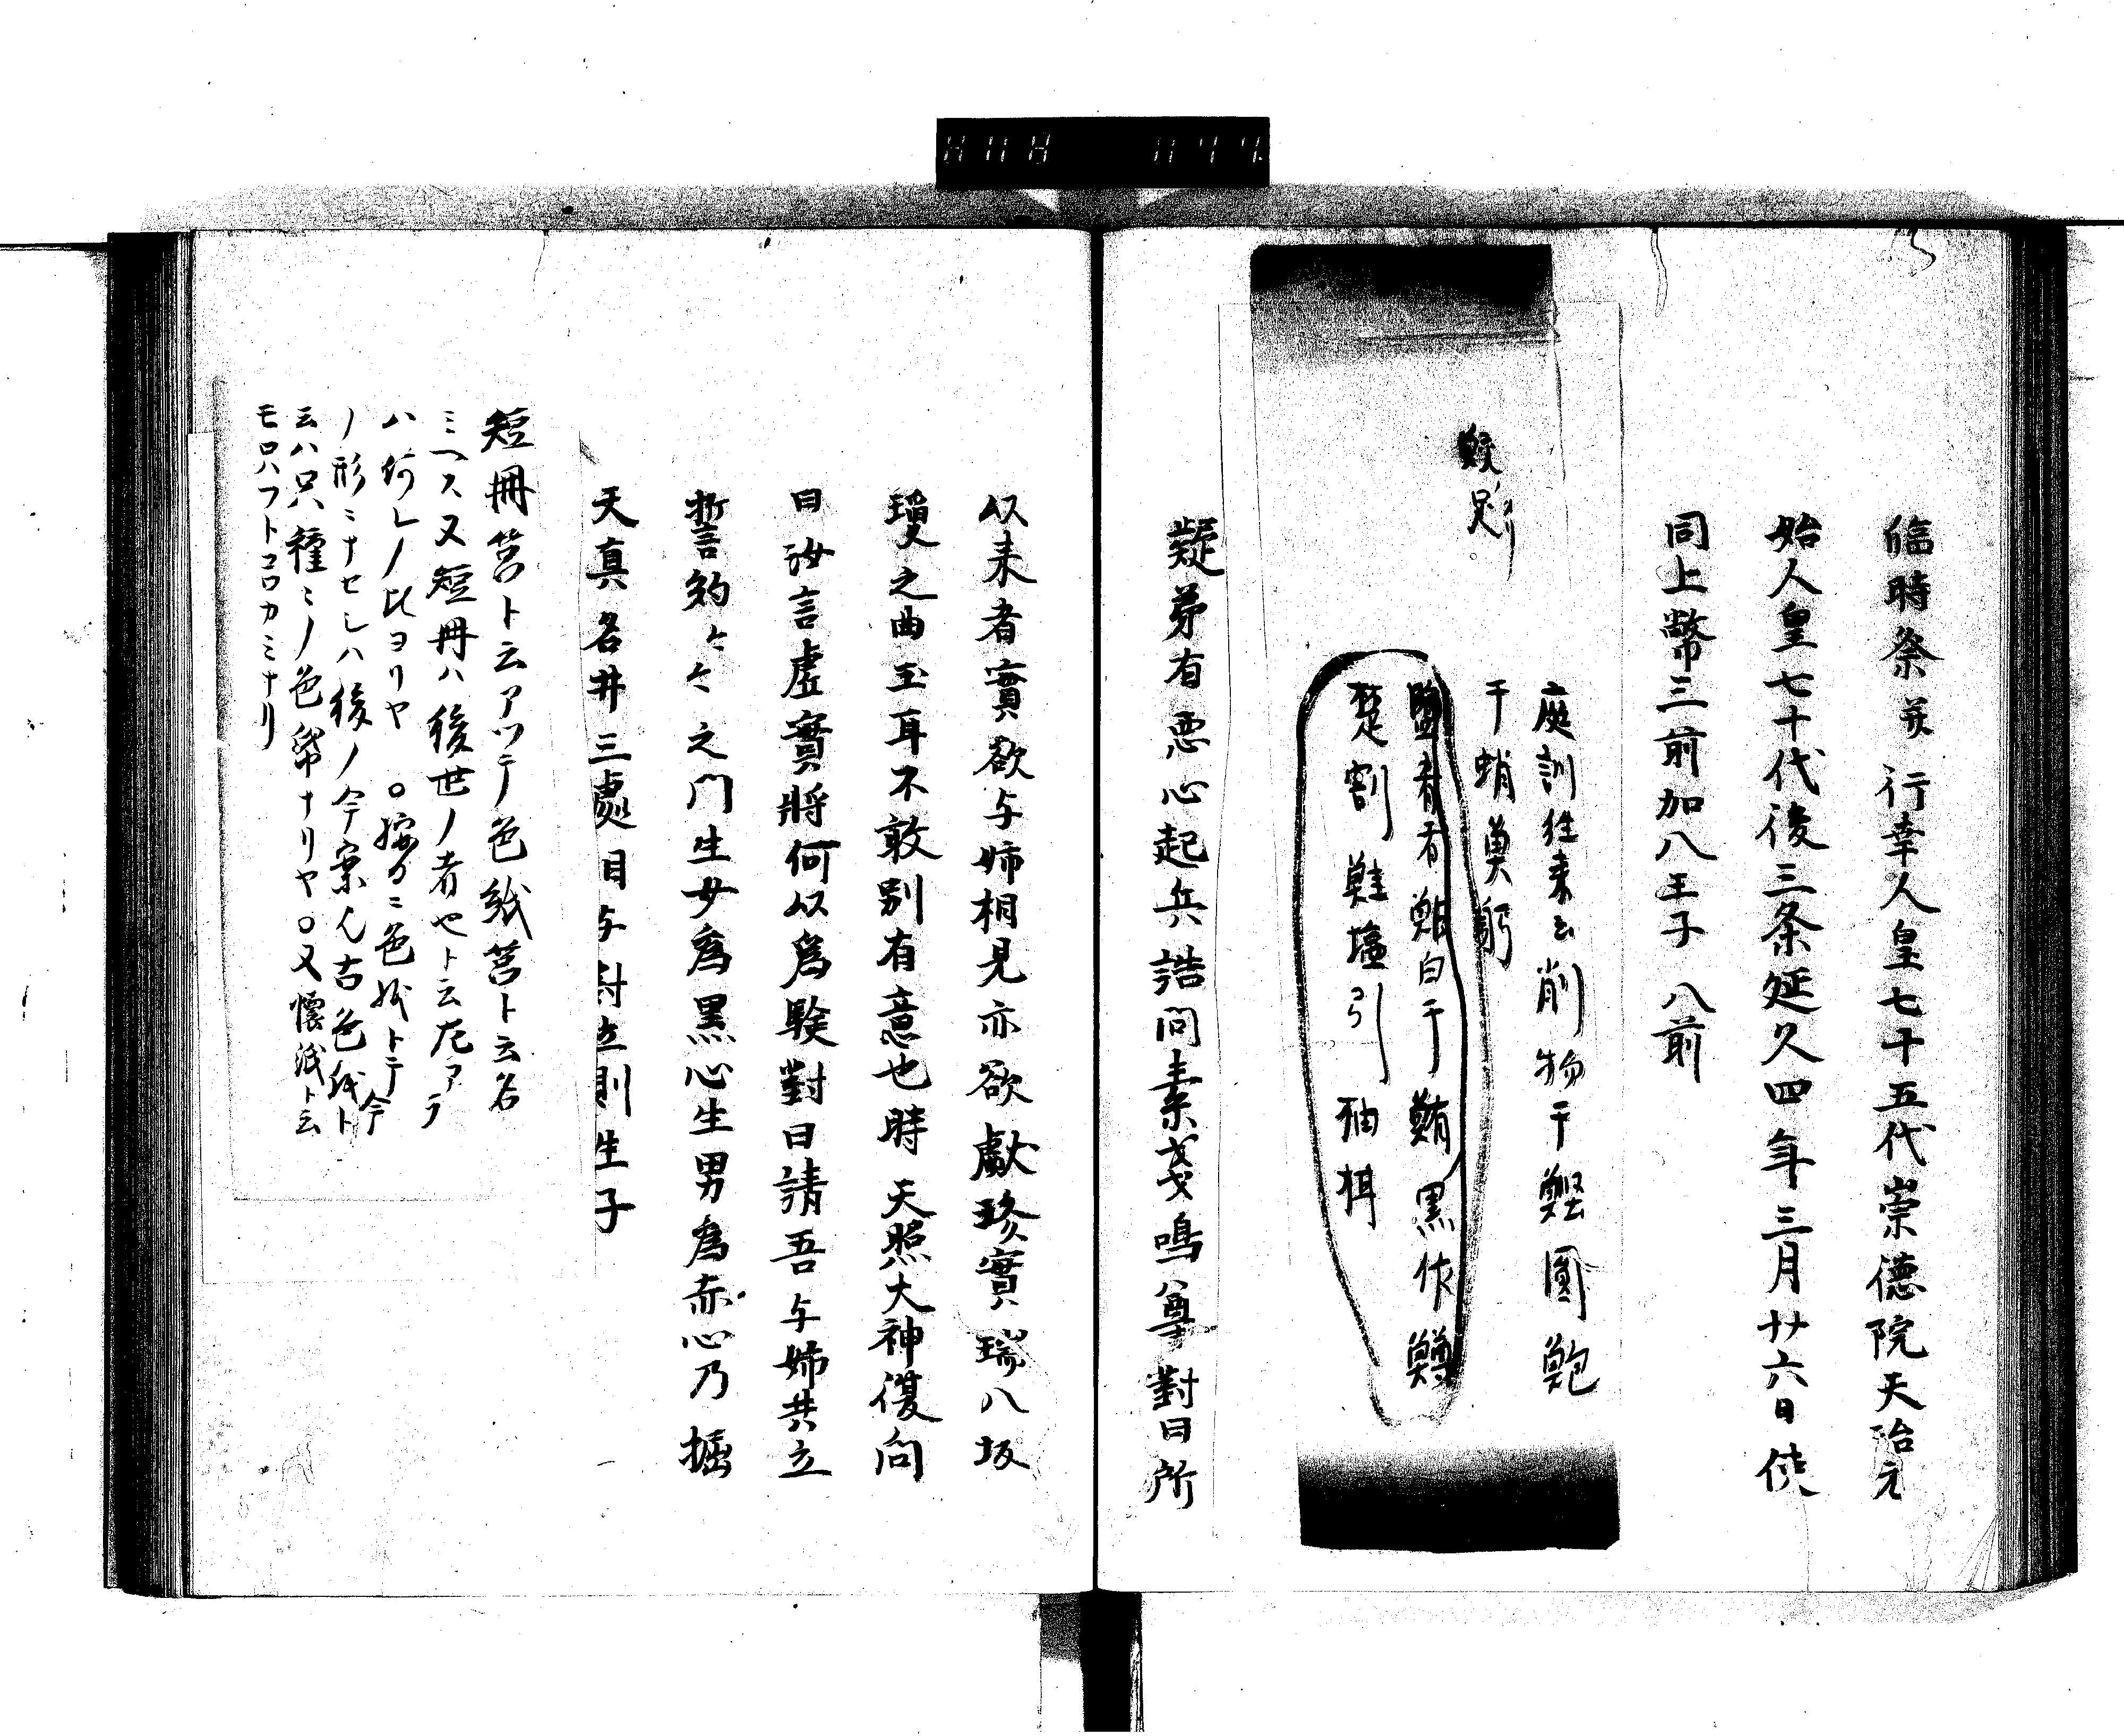 臨時祭并行幸人皇七十五代崇徳院天治元
始人皇七十代後三条延久四年三月廿六日使
同上幣三前加八王子八前
庭訓往来云削物干鰹圓鮑
干蛸魚躬
塩肴者鯛白干鮪黒作鱒
楚割鮭塩引
疑弟有悪心起兵詰問素戔鳴尊對曰所
以来者實欲与姉相見亦欲獻珍寶瑞八坂
瓊之曲玉耳不敢別有意也時天照大神復問
曰汝言虚實將何以為驗對曰請吾与姉共立
誓約々々之門生女為黒心生男為赤心乃掘
天真名井三處目与對立則生子
短冊筥ト云アツテ色紙筥ト云名
ミヘス又短冊ハ後世ノ者也ト云尤アテ
ハ何レノ比ヨリヤ○按ルニ色紙トテ今
ノ形ニナセシハ後ノ今案也古色紙ト
云ハ只種ミノ色帋ナリヤ○又懐紙ト云
モロハフトコロカミナリ